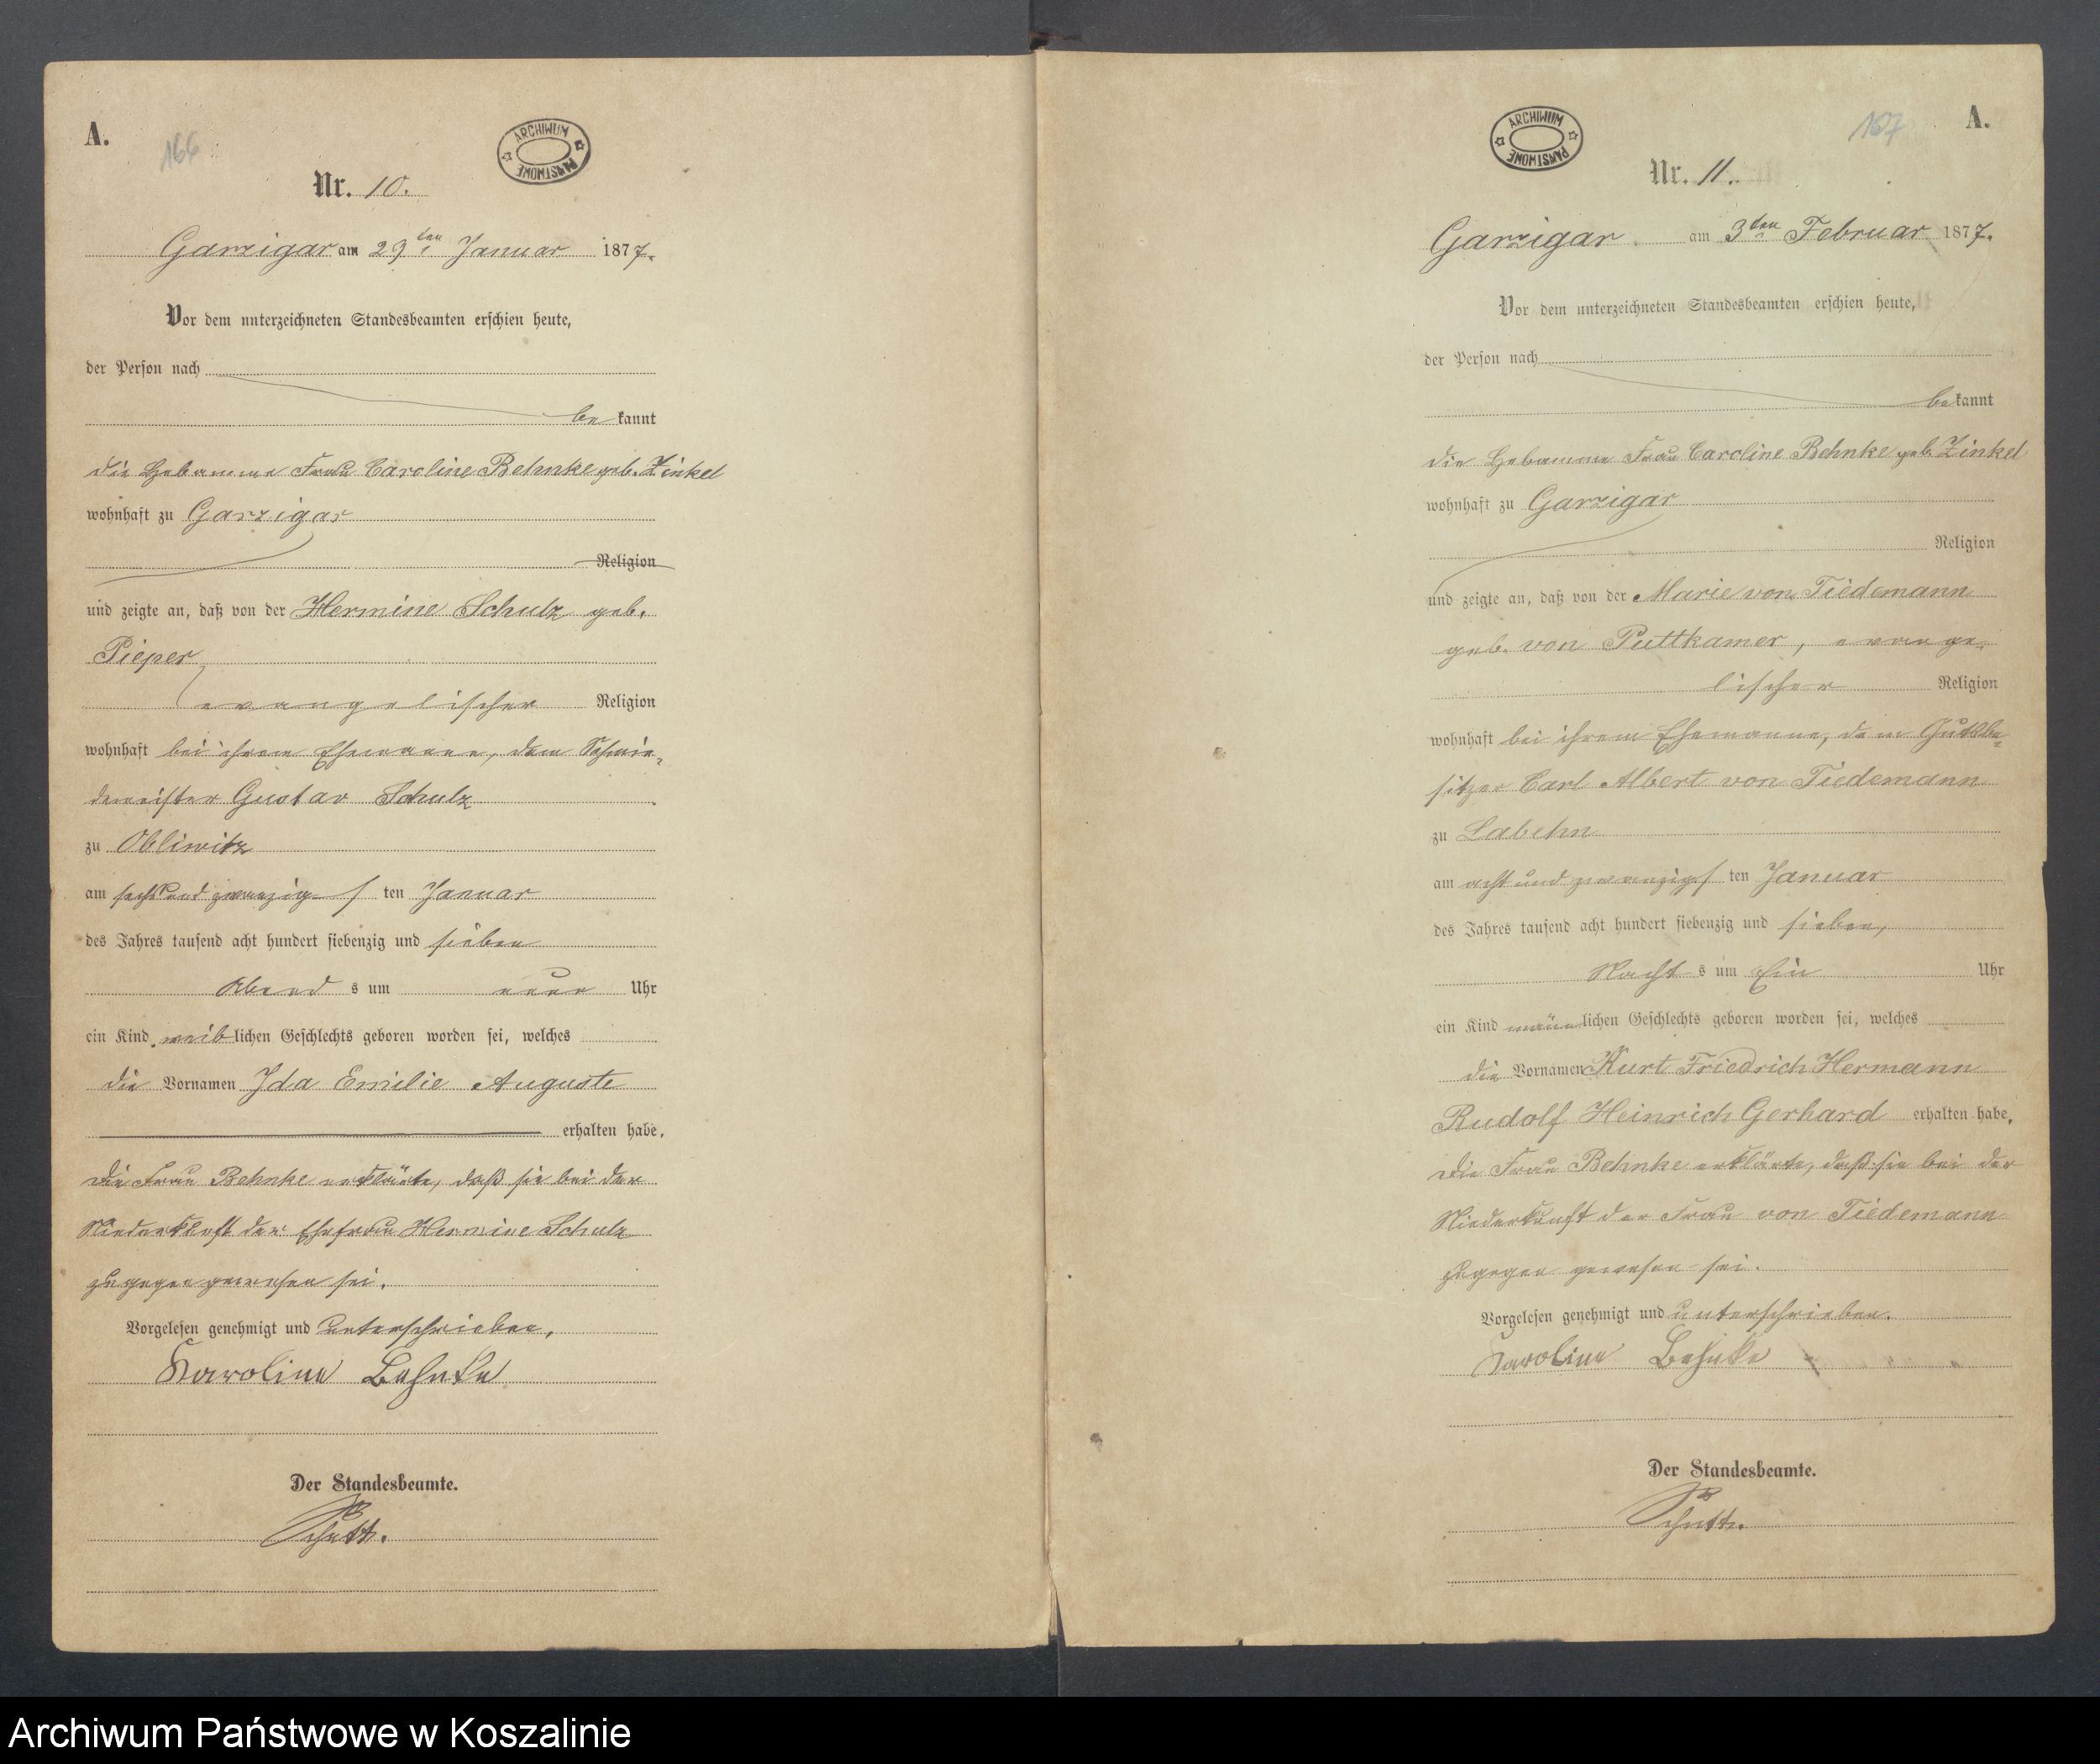 A.
166
ARCHIWUM PAŃSTWOWE
Nr. 10.
Garzigar am 29ten Januar 1877.
Vor dem unterzeichneten Standesbeamten erschien heute,
der Person nach
be kannt
die Hebamme Frau Caroline Behnke geb. Zinkel
wohnhaft zu Garzigar
Religion
und zeigte an, daß von der Hermine Schulz geb.
Pieper
evangelischer Religion
wohnhaft bei ihrem Ehemanne, dem Schmie-
demeister Gustav Schulz
zu Obliwitz
am sechsundzwanzigs ten Januar
des Jahres tausend acht hundert siebenzig und sieben
Abend s um neun Uhr
ein Kind weiblichen Geschlechts geboren worden sei, welches
die Vornamen Ida Emilie Auguste
erhalten habe.
Die Frau Behnke erklärte, daß sie bei der
Niederkunft der Ehefrau Hermine Schulz
zugegen gewesen sei.
Vorgelesen genehmigt und unterschrieben.
Karoline Behnke
Der Standesbeamte.
A.
167
ARCHIWUM PAŃSTWOWE
Nr. 11.
Garzigar am 3ten Februar 1877.
Vor dem unterzeichneten Standesbeamten erschien heute,
der Person nach
bekannt
die Hebamme Frau Caroline Behnke geb. Zinkel
wohnhaft zu Garzigar
Religion
und zeigte an, daß von der Marie von Tiedemann
geb. von Puttkamer, evange-
lischer Religion
wohnhaft bei ihrem Ehemanne, dem Gutsbe-
sitzer Carl Albert von Tiedemann
zu Labehn
am acht und zwanzigs ten Januar
des Jahres tausend acht hundert siebenzig und sieben,
Nacht s um Ein Uhr
ein Kind männlichen Geschlechts geboren worden sei, welches
die Vornamen Kurt Friedrich Hermann
Rudolf Heinrich Gerhard erhalten habe.
Die Frau Behnke erklärte, daß sie bei der
Niederkunft der Frau von Tiedemann
zugegen gewesen sei.
Vorgelesen genehmigt und unterschrieben.
Karoline Behnke
Der Standesbeamte.
Archiwum Państwowe w Koszalinie